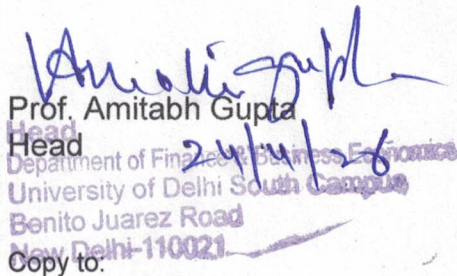 Prof. Amitabh Gupta
Head
Head
24/4/26
Department of Finance & Business Economics
University of Delhi South Campus
Benito Juarez Road
New Delhi-110021
Copy to: